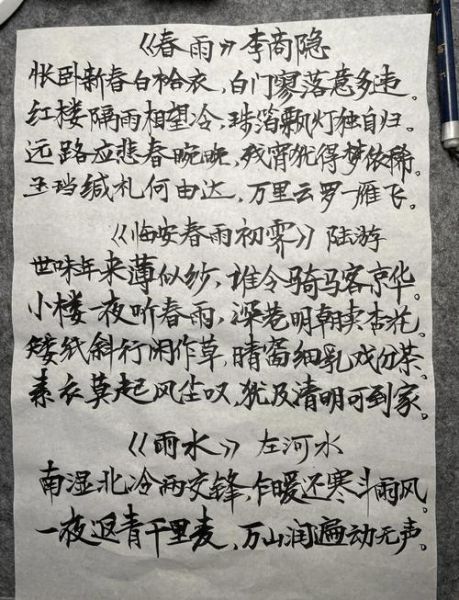 《春雨》李商隐
怅卧新春白袷衣，白门寥落意多违。
红楼隔雨相望冷，珠箔飘灯独自归。
远路应悲春晼晚，残宵犹得梦依稀。
玉珰缄札何由达，万里云罗一雁飞。
《临安春雨初霁》陆游
世味年来薄似纱，谁令骑马客京华。
小楼一夜听春雨，深巷明朝卖杏花。
矮纸斜行闲作草，晴窗细乳戏分茶。
素衣莫起风尘叹，犹及清明可到家。
《雨水》左河水
南湿北冷两交锋，乍暖还寒斗雨风。
一夜返青千里麦，万山润遍动无声。